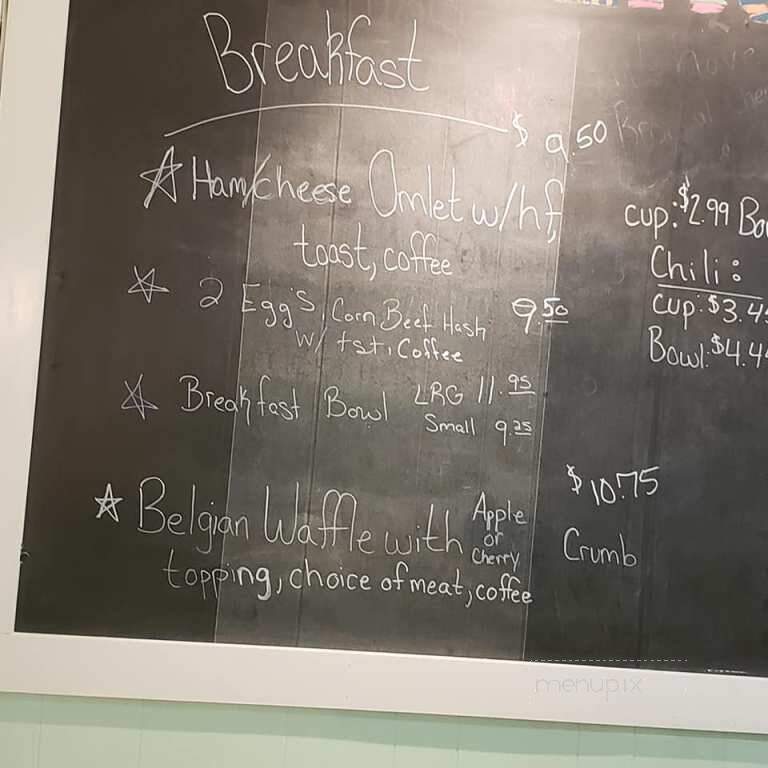 Breakfast
$ 9.50
Ham/cheese Omlet w/hf,
toast, coffee
2 Egg's, Corn Beef Hash 9.50
w/ tst, Coffee
Breakfast Bowl LRG 11.95
Small 9.25
$10.75
Belgian Waffle with Apple or Cherry Crumb
topping, choice of meat, coffee
cup: $2.99
Chili:
cup: $3.4
Bowl: $4.4
menupix